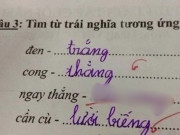 âu 3: Tìm từ trái nghĩa tương ứng
đen - trắng
cong - thẳng
ngay thẳng -
cần cù - lười biếng